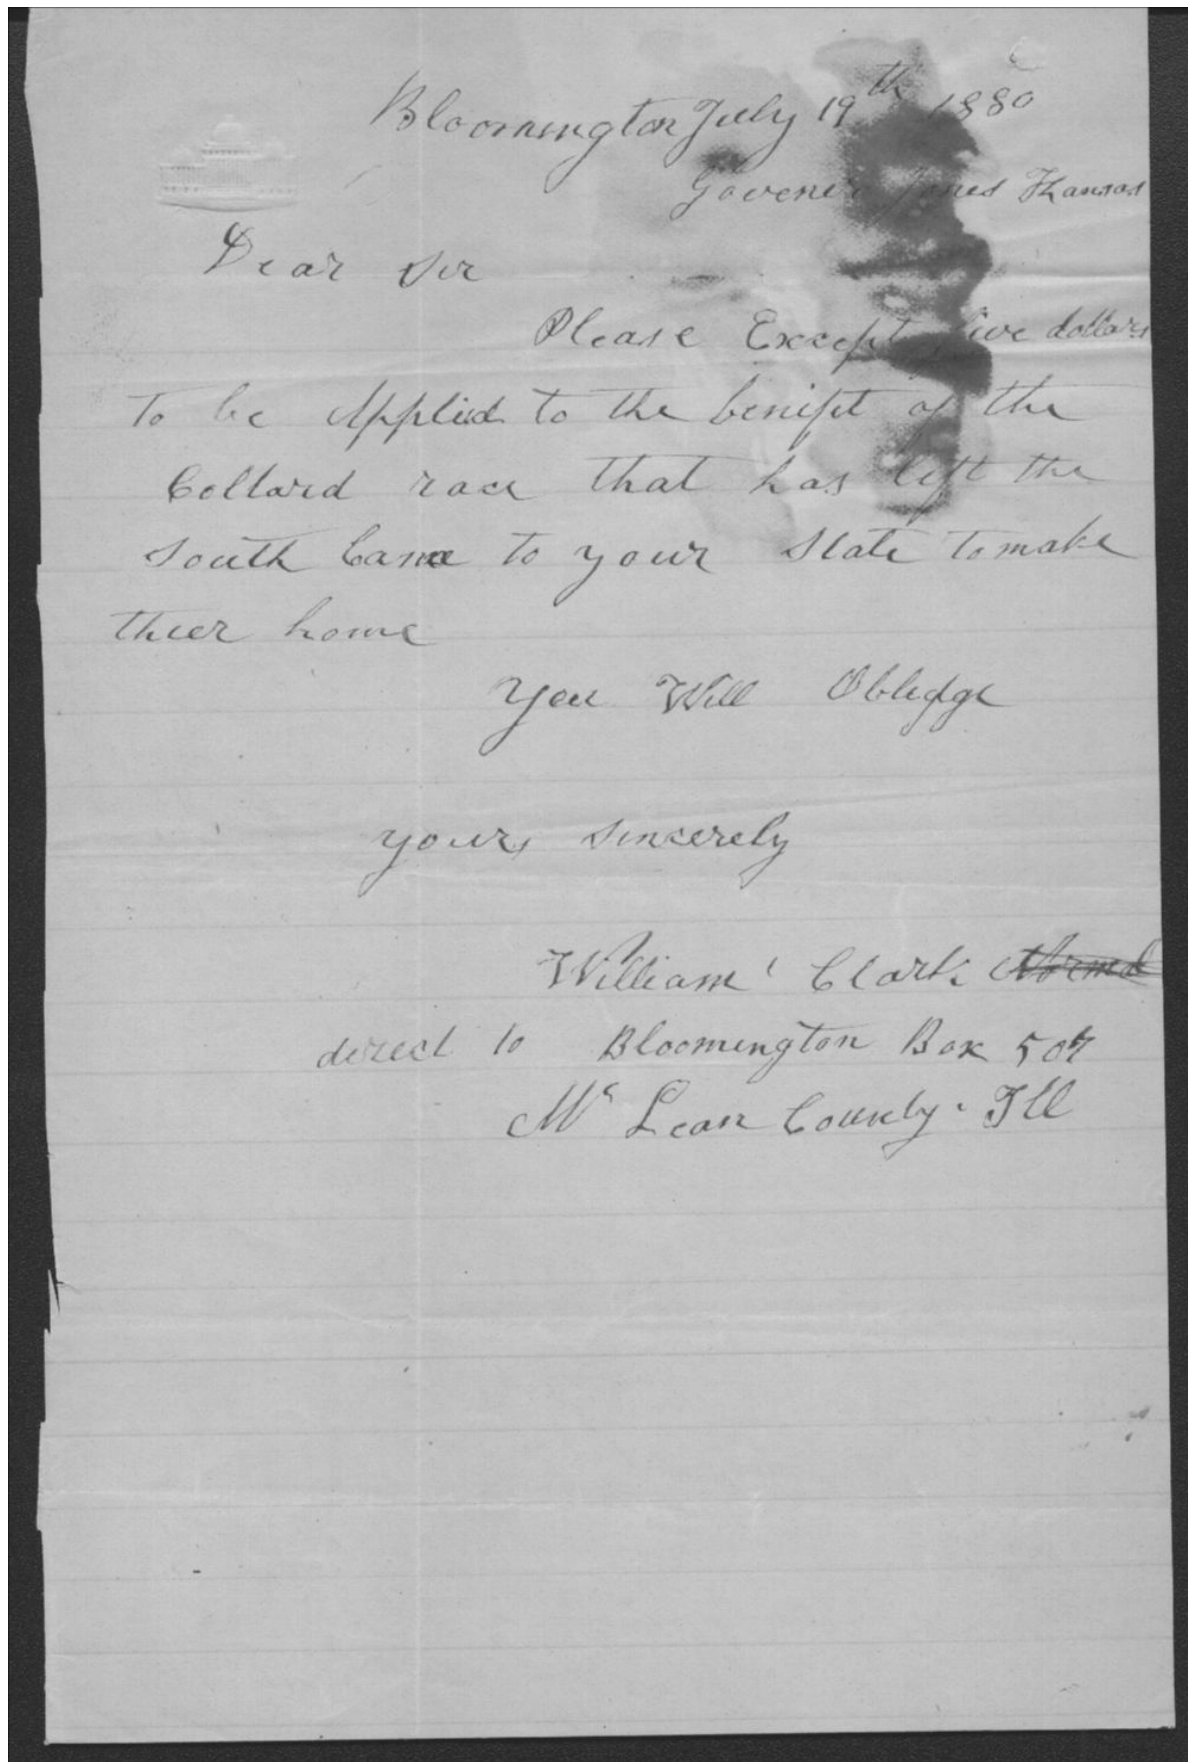 Bloomington July 19th 1880
Govener Jones Kansas
Dear Sir
Please Except five dollars
To be Applied to the benifit of the
Collard race that has left the
South Came to your State to make
thier home
You Will Obledge
yours Sincerely
William Clark
direct to Bloomington Box 507
Mc Lean County. Ill